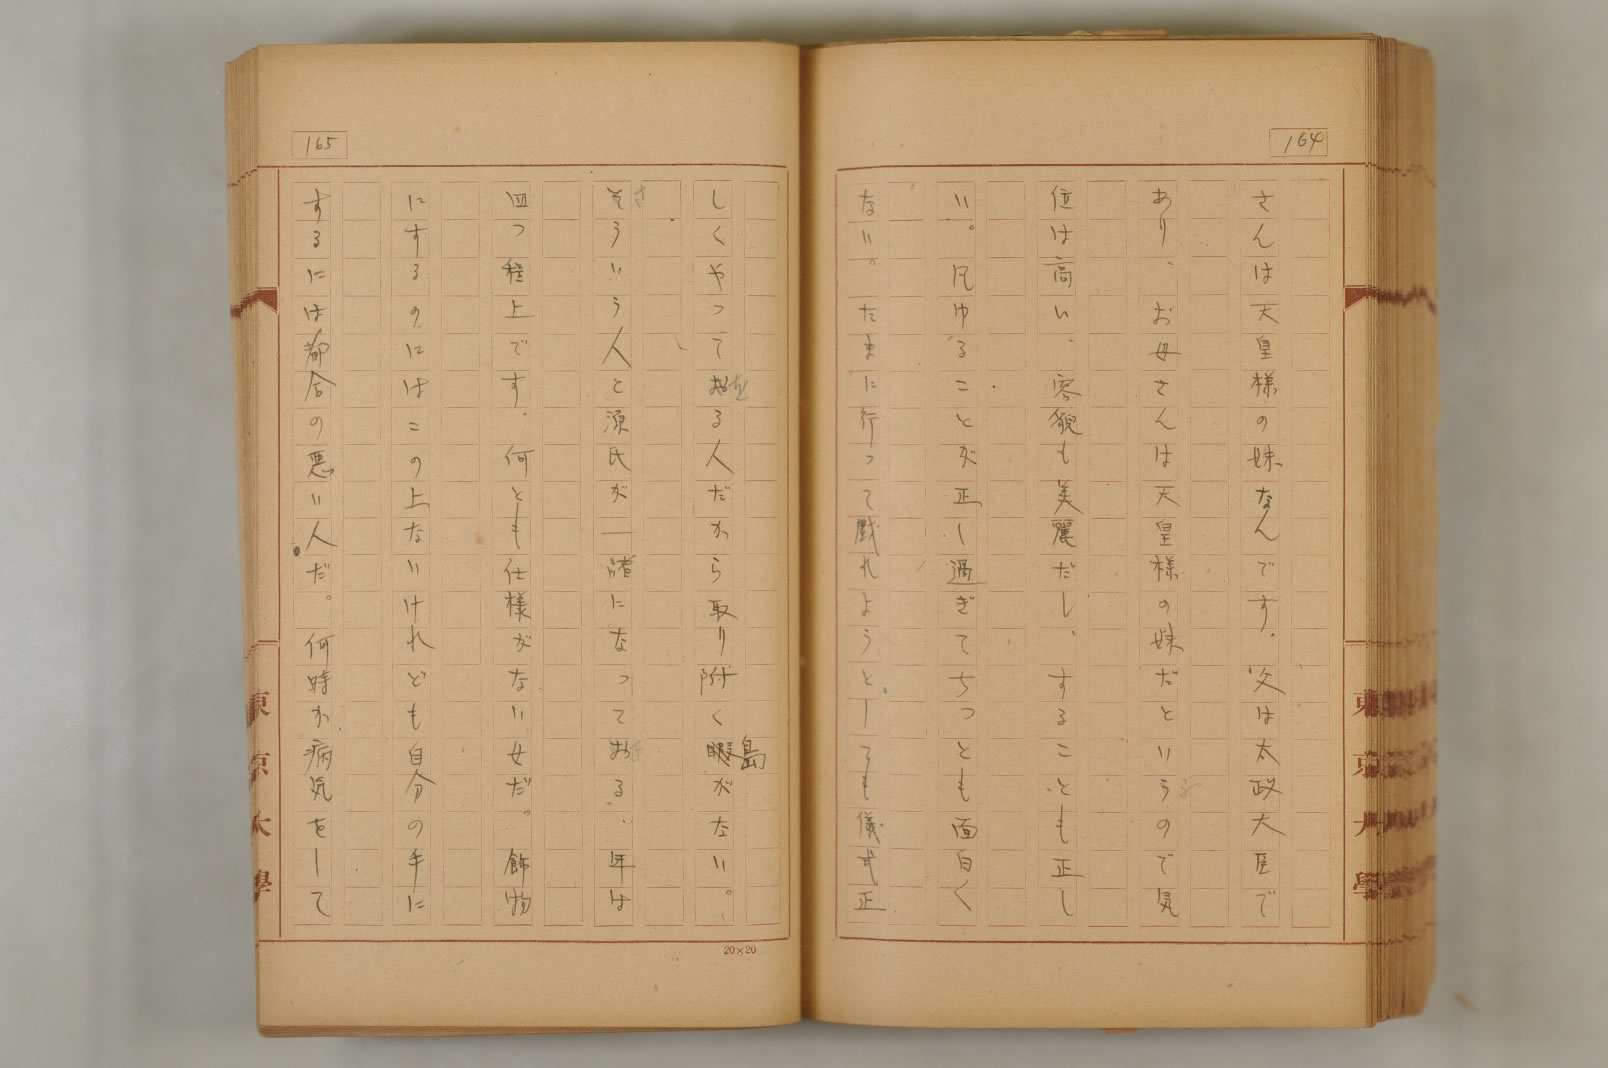 164
さんは天皇様の妹なんです。父は太政大臣で
あり、お母さんは天皇様の妹だというので気
位は高い、容貌も美麗だし、することも正し
い。凡ゆることが正し過ぎてちつとも面白く
ない。たまに行って戯れようとしても儀式正
東京大學
165
しくやってる人だから取り附く島がない。
そういう人と源氏が一緒になってる、年は
四つ程上です。何とも仕様がない女だ。飾物
にするのにはこの上ないけれども自分の手に
するには都合の悪い人だ。何時か病気をして
20×20
東京大學